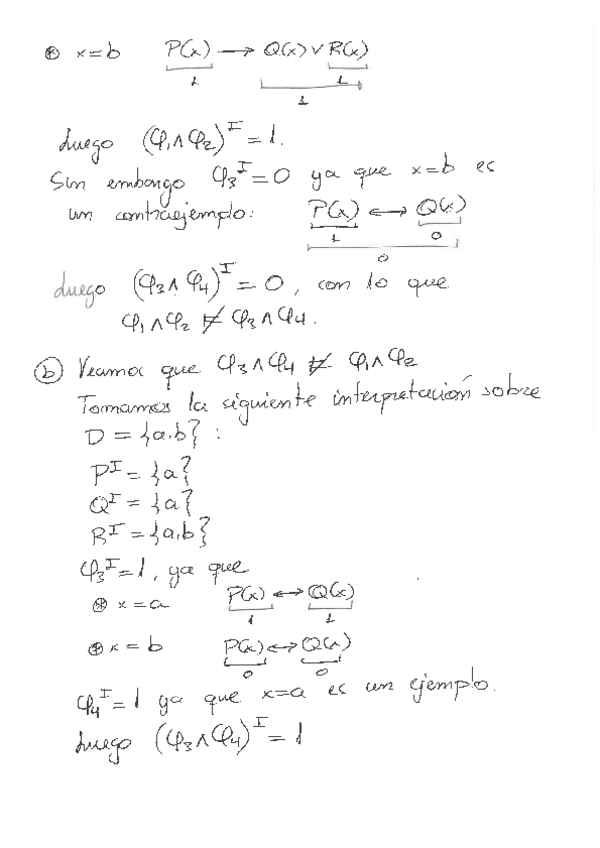 ⊛ x=b P(x) → Q(x) ∨ R(x)
1 1
1
Luego (φ₁∧φ₂)ᴵ = 1.
Sin embargo φ₃ᴵ=0 ya que x=b es
un contraejemplo: P(x) ↔ Q(x)
1 0
0
Luego (φ₃∧φ₄)ᴵ = 0, con lo que
φ₁∧φ₂ ⊭ φ₃∧φ₄.
ⓑ Veamos que φ₃∧φ₄ ⊭ φ₁∧φ₂
Tomamos la siguiente interpretación sobre
D = {a,b} :
Pᴵ = {a}
Qᴵ = {a}
Rᴵ = {a,b}
φ₃ᴵ=1, ya que
⊛ x=a P(x) ↔ Q(x)
1 1
⊛ x=b P(x) ↔ Q(x)
0 0
φ₄ᴵ=1 ya que x=a es un ejemplo.
Luego (φ₃∧φ₄)ᴵ = 1